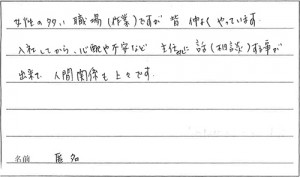 女性の多い職場(作業)ですが皆仲よくやっています。
入社してから、心配や不安など主任に話(相談)する事が
出来て人間関係も上々です。
名前 匿名